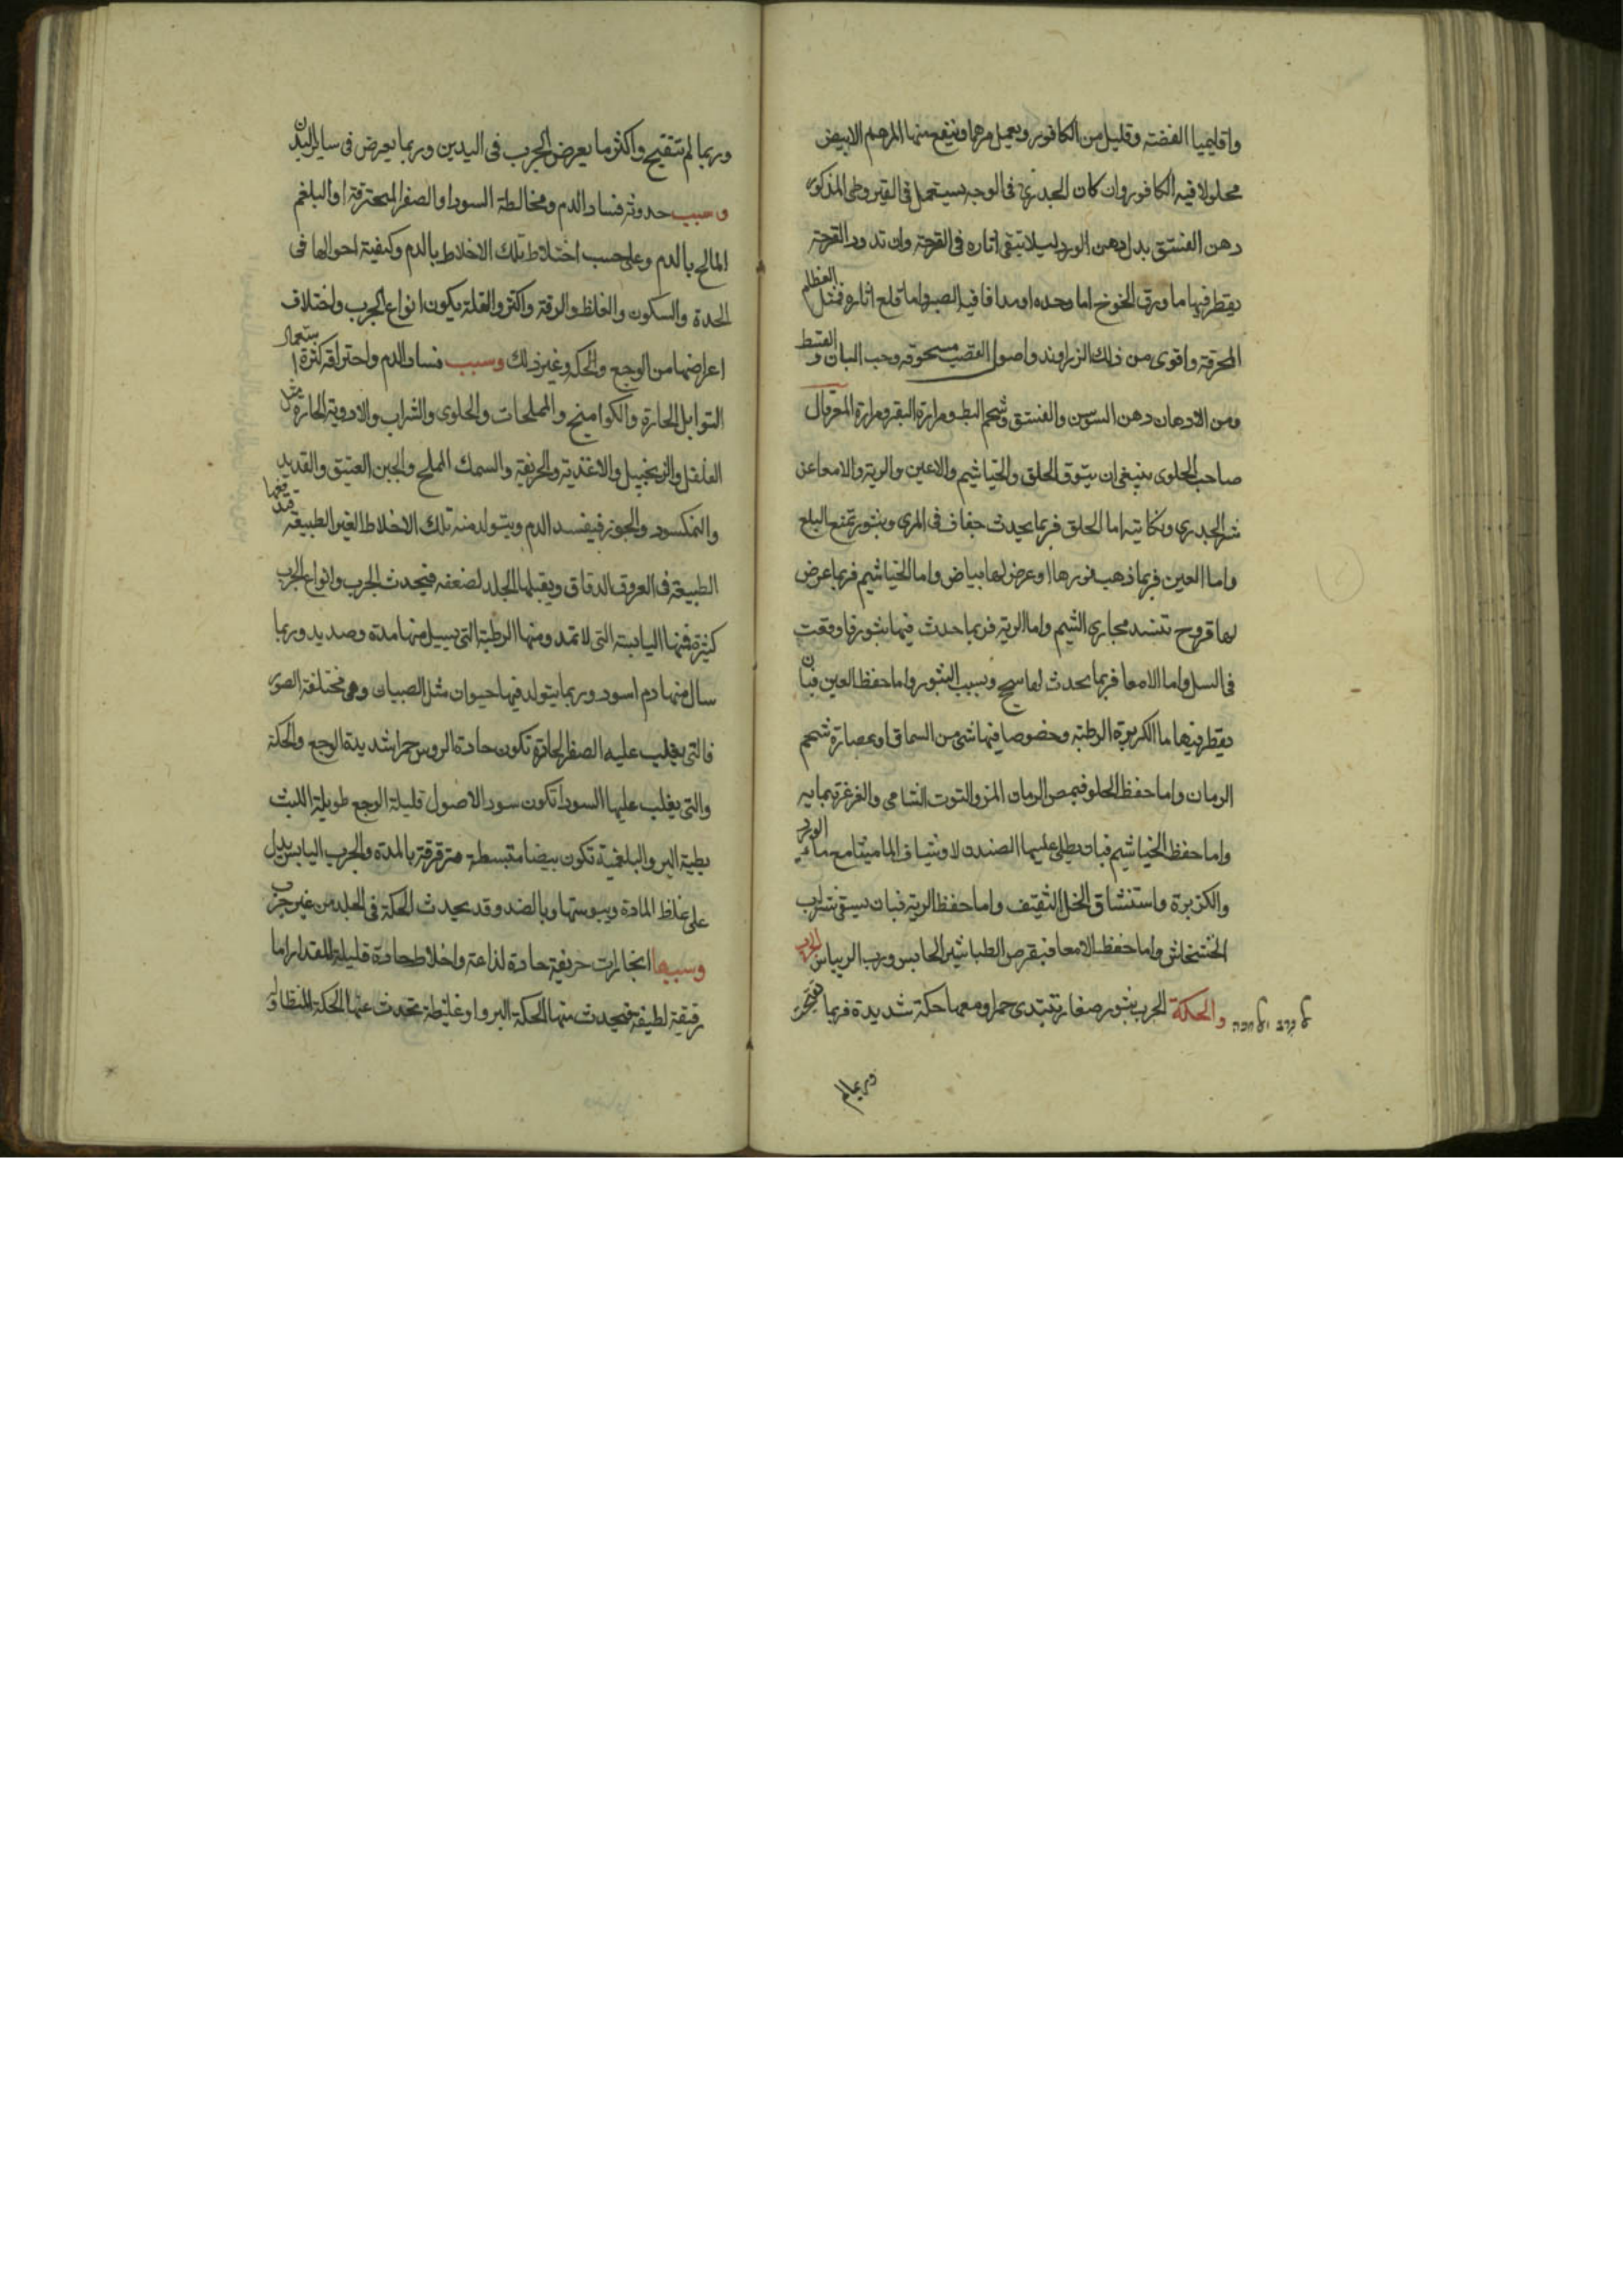 واقليميا الفضته وقليل من الكافور ويعمل مرهما وينفع منها المرهم الابيض
محلولا فيه الكافور وان كان الجدري في الوجه يستعمل في القيروطي المذكور
دهن الفستق بدل دهن الورد ليلا تبقى اثاره في القرحة وان تدود القرحة
يقطر فيها ما ورق الخوخ اما وحده او مدافا فيه الصبر واما قلع اثاره فمثل العظام
المحرقة واقوى من ذلك الزراوند واصول القصب مسحوقه وحب البان والقسط
ومن الادهان دهن السوسن والفستق وشحم البط ومرارة البقر ومرارة المعز قال
صاحب الحاوى ينبغي ان يتوقى الحلق والخياشيم والاعين والرية والامعا عن
شر الجدري ونكايته اما الحلق فربما يحدث جفاف في المري وبثور تمنع البلع
واما العين فربما ذهب نورها او عرض لها بياض واما الخياشيم فربما عرض
لها قروح تسد مجاري الشم واما الرية فربما حدث فيها بثور فاوقعت
في السل واما الامعا فربما يحدث لها سحج وبسبب البثور واما حفظ العين فبان
يقطر فيها ما الكزبرة الرطبة وخصوصا فيها شي من السماق او بعصارة شحم
الرمان واما حفظ الحلق فبمص الرمان المز والتوت الشامي والغرغرة بمايه
واما حفظ الخياشيم فبان يطلى عليها الصندل وشياف الماميثا مع ما الورد
والكزبرة واستنشاق الخل الثقيف واما حفظ الرية فبان يسقى شراب
الخشخاش واما حفظ الامعا فبقرص الطباشير الحابس ورب الريباس الجرب
والحكة الجرب بثور صغار تبتدى حمرا ومعها حكة شديدة فربما تقيحت
وربما لم
وربما لم تتقيح واكثر ما يعرض الجرب في اليدين وربما يعرض في ساير البدن
وسبب حدوثه فساد الدم ومخالطة السودا والصفرا المحترقة او البلغم
المالح بالدم وعلى حسب اختلاط تلك الاخلاط بالدم وكيفية احوالها في
الحدة والسكون والغلظ والرقة واكثر والقلة يكون انواع الجرب واختلاف
اعراضها من الوجع والحكه وغير ذلك وسبب فساد الدم واحتراقه كثرة استعمال
التوابل الحارة والكواميخ والمملحات والحلوى والشراب والادوية الحارة مثل
الفلفل والزنجبيل والاغذية والحريفة والسمك المملح والجبن العتيق والقديد
والنمكسود والجوز فيفسد الدم ويتولد منه تلك الاخلاط الغير الطبيعة فتدفعها
الطبيعة في العروق الدقاق ويقبلها الجلد لضعفه فيحدث الجرب وانواع الجرب
كثيرة فمنها اليابسة التي لا تمد ومنها الرطبة التي يسيل منها مدة وصديد وربما
سال منها دم اسود وربما يتولد فيها حيوان مثل الصيبان وهي مختلفة الصور
فالتي يغلب عليه الصفرا الحادة تكون حادة الروس حمرا شديدة الوجع والحكة
والتي يغلب عليها السودا تكون سودا الاصول قليلة الوجع طويلة اللبث
بطية البر والبلغمية تكون بيضا منبسطة مترقرقة بالمدة والجرب اليابس يدل
على غلظ المادة ويبوستها وبالضد وقد يحدث الحكة في الجلد من غير جرب
وسببها انجارات حريفة حادة لذاعة واخلاط حادة قليلة المقدار اما
رقيقة لطيفة فيحدث منها الحكة البر او غليظة تحدث عنها الحكة المتطاولة